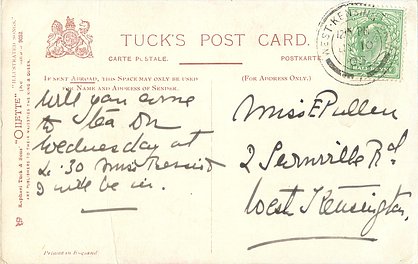 TUCK'S POST CARD.
CARTE POSTALE.
POSTKARTE.
IF SENT ABROAD, THIS SPACE MAY ONLY BE USED
FOR NAME AND ADDRESS OF SENDER.
(FOR ADDRESS ONLY.)
Will you come
to tea on
Wednesday at
4.30 Miss
I will be in.
Miss E Pullen
2 Rd
West Kensington
WEST KENSINGTON
Raphael Tuck & Sons' "OILETTE"
Printed in England